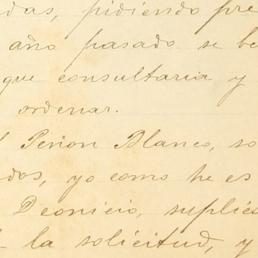 das, pidiendo pre
año pasado se be
que consultaria y
ordenar.
Peñon Blanco, so
dos, yo como he es
Deonicio, suplica
la solicitud, y